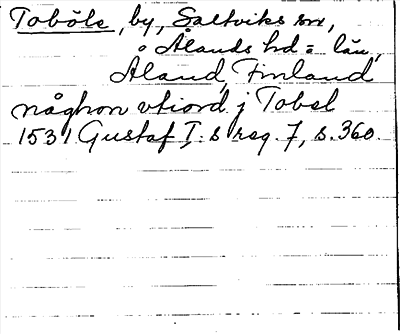 Toböle, by, Saltviks sn,
Ålands hd = län,
Åland, Finland
någhon vtiord j Tobel
1531 Gustaf I:s reg. 7, s. 360.